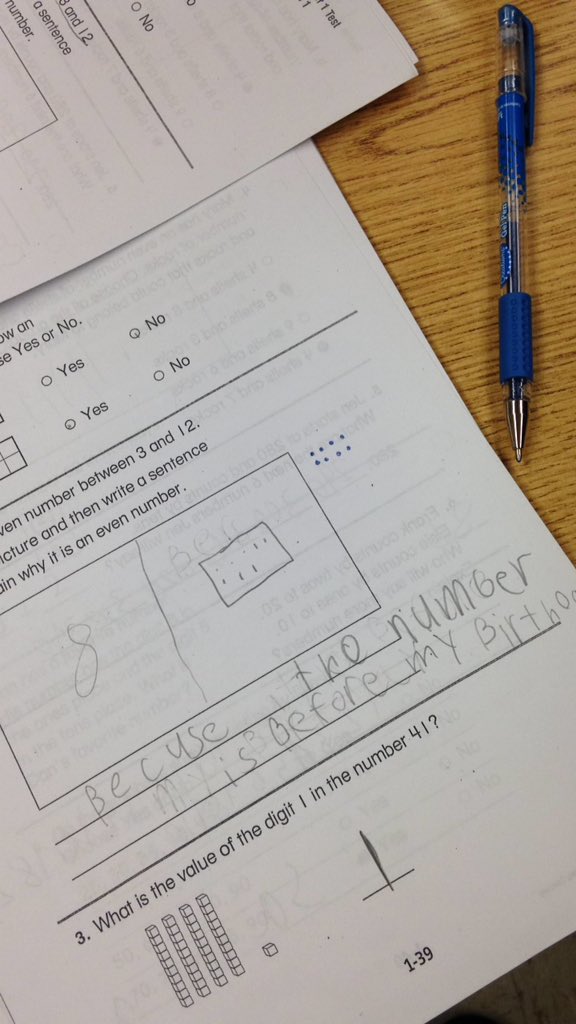 r 1 Test
3 and 12.
a sentence
number.
No
ow an
se Yes or No.
Yes
No
Yes
No
ven number between 3 and 12.
icture and then write a sentence
ain why it is an even number.
8
Becuse the number
my is Before my Birthda
3. What is the value of the digit 1 in the number 41?
1
1-39